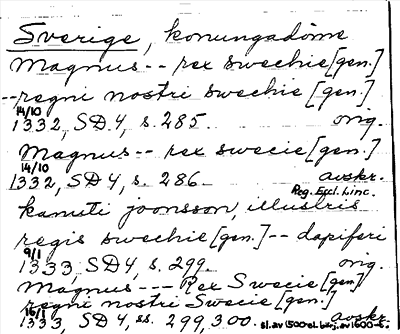 Sverige, konungadöme
Magnus -- rex swechie [gen.]
-- regni nostri swechie [gen.]
14/10
1332, SD 4, s. 285. orig.
Magnus -- rex swecie [gen.]
14/10
1332, SD 4, s. 286 avskr.
Reg. Eccl. Linc.
kanuti joonsson, illustris
regis swechie [gen.] -- dapiferi
9/1
1333, SD 4, s. 299. orig.
Magnus --- Rex Swecie [gen]
regni nostri Swecie [gen.]
16/1
1333, SD 4, ss. 299, 300. avskr.
sl. av 1500 el. börj. av 1600-t.